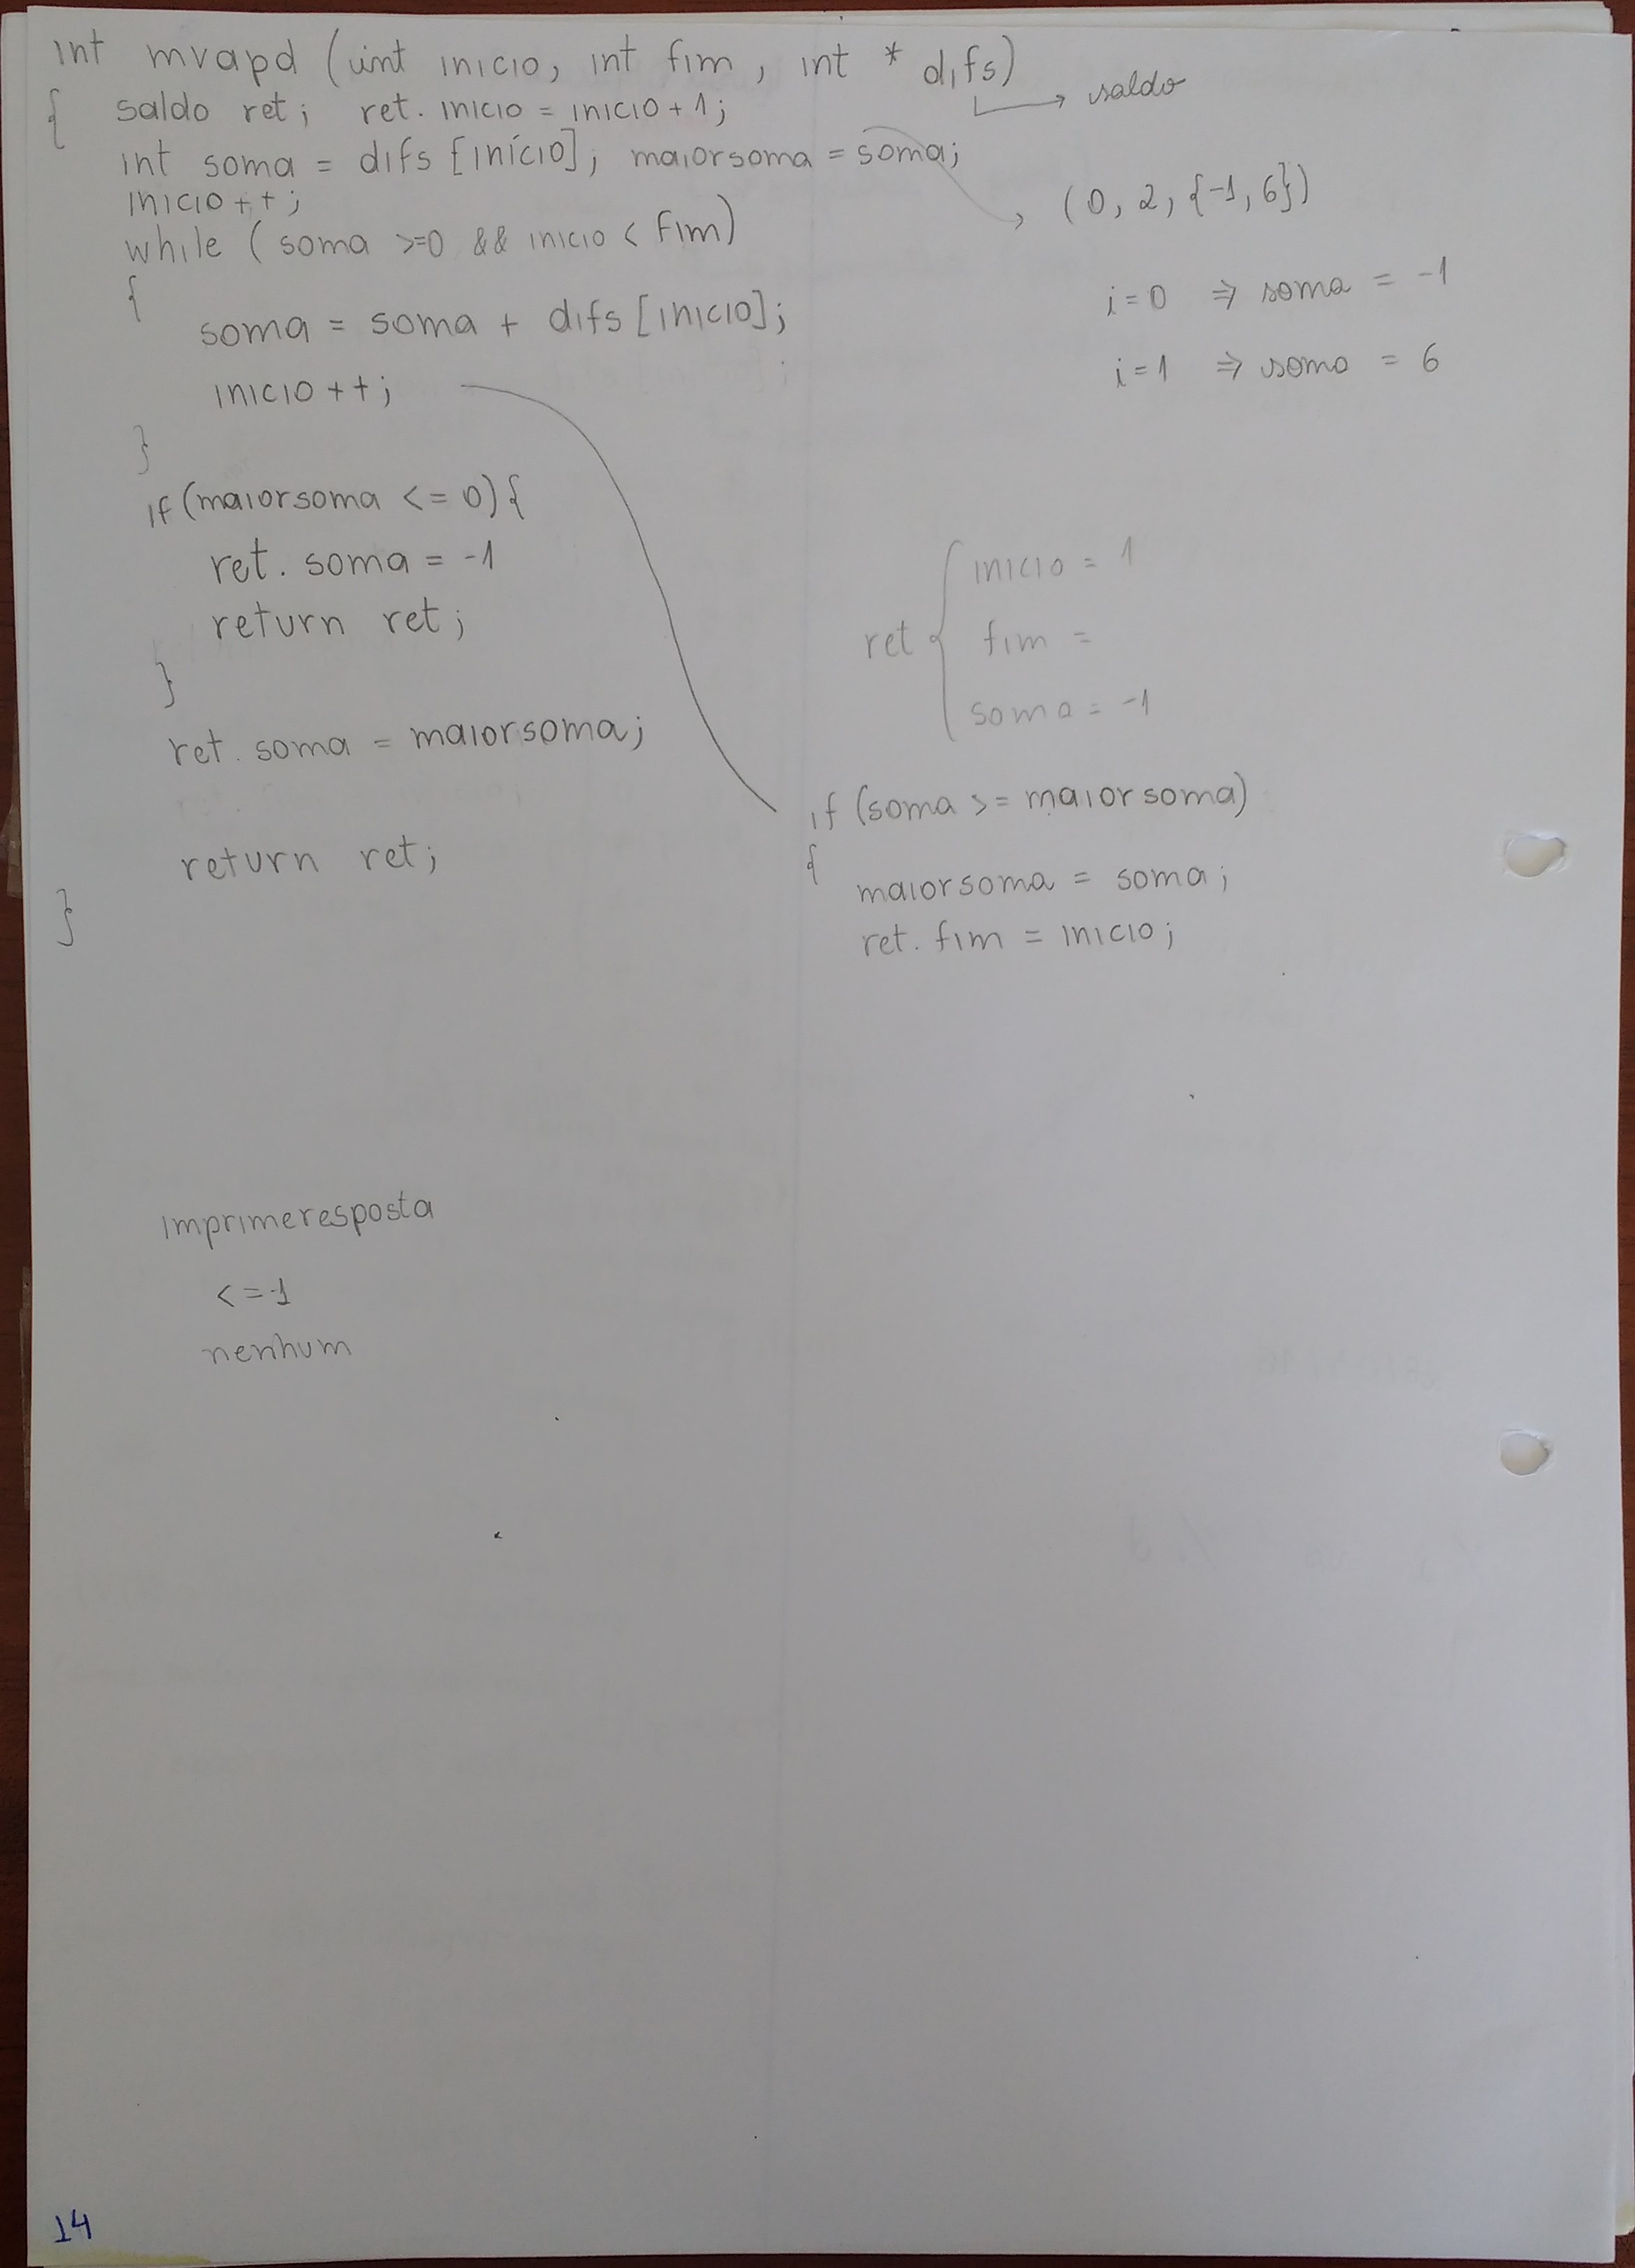 int mvapd (int inicio, int fim, int * difs)
↳ saldo
{ saldo ret; ret. inicio = inicio + 1;
int soma = difs [início]; maiorsoma = soma;
inicio ++;
while ( soma >=0 && inicio < fim)
{
soma = soma + difs [inicio];
inicio ++;
}
if (maiorsoma <= 0) {
ret. soma = -1
return ret;
}
ret. soma = maiorsoma;
return ret;
}
(0, 2, {-1, 6})
i=0 ⇒ soma = -1
i=1 ⇒ soma = 6
ret {
inicio = 1
fim =
soma = -1
if (soma >= maiorsoma)
{
maiorsoma = soma;
ret. fim = inicio;
imprimeresposta
<=-1
nenhum
14